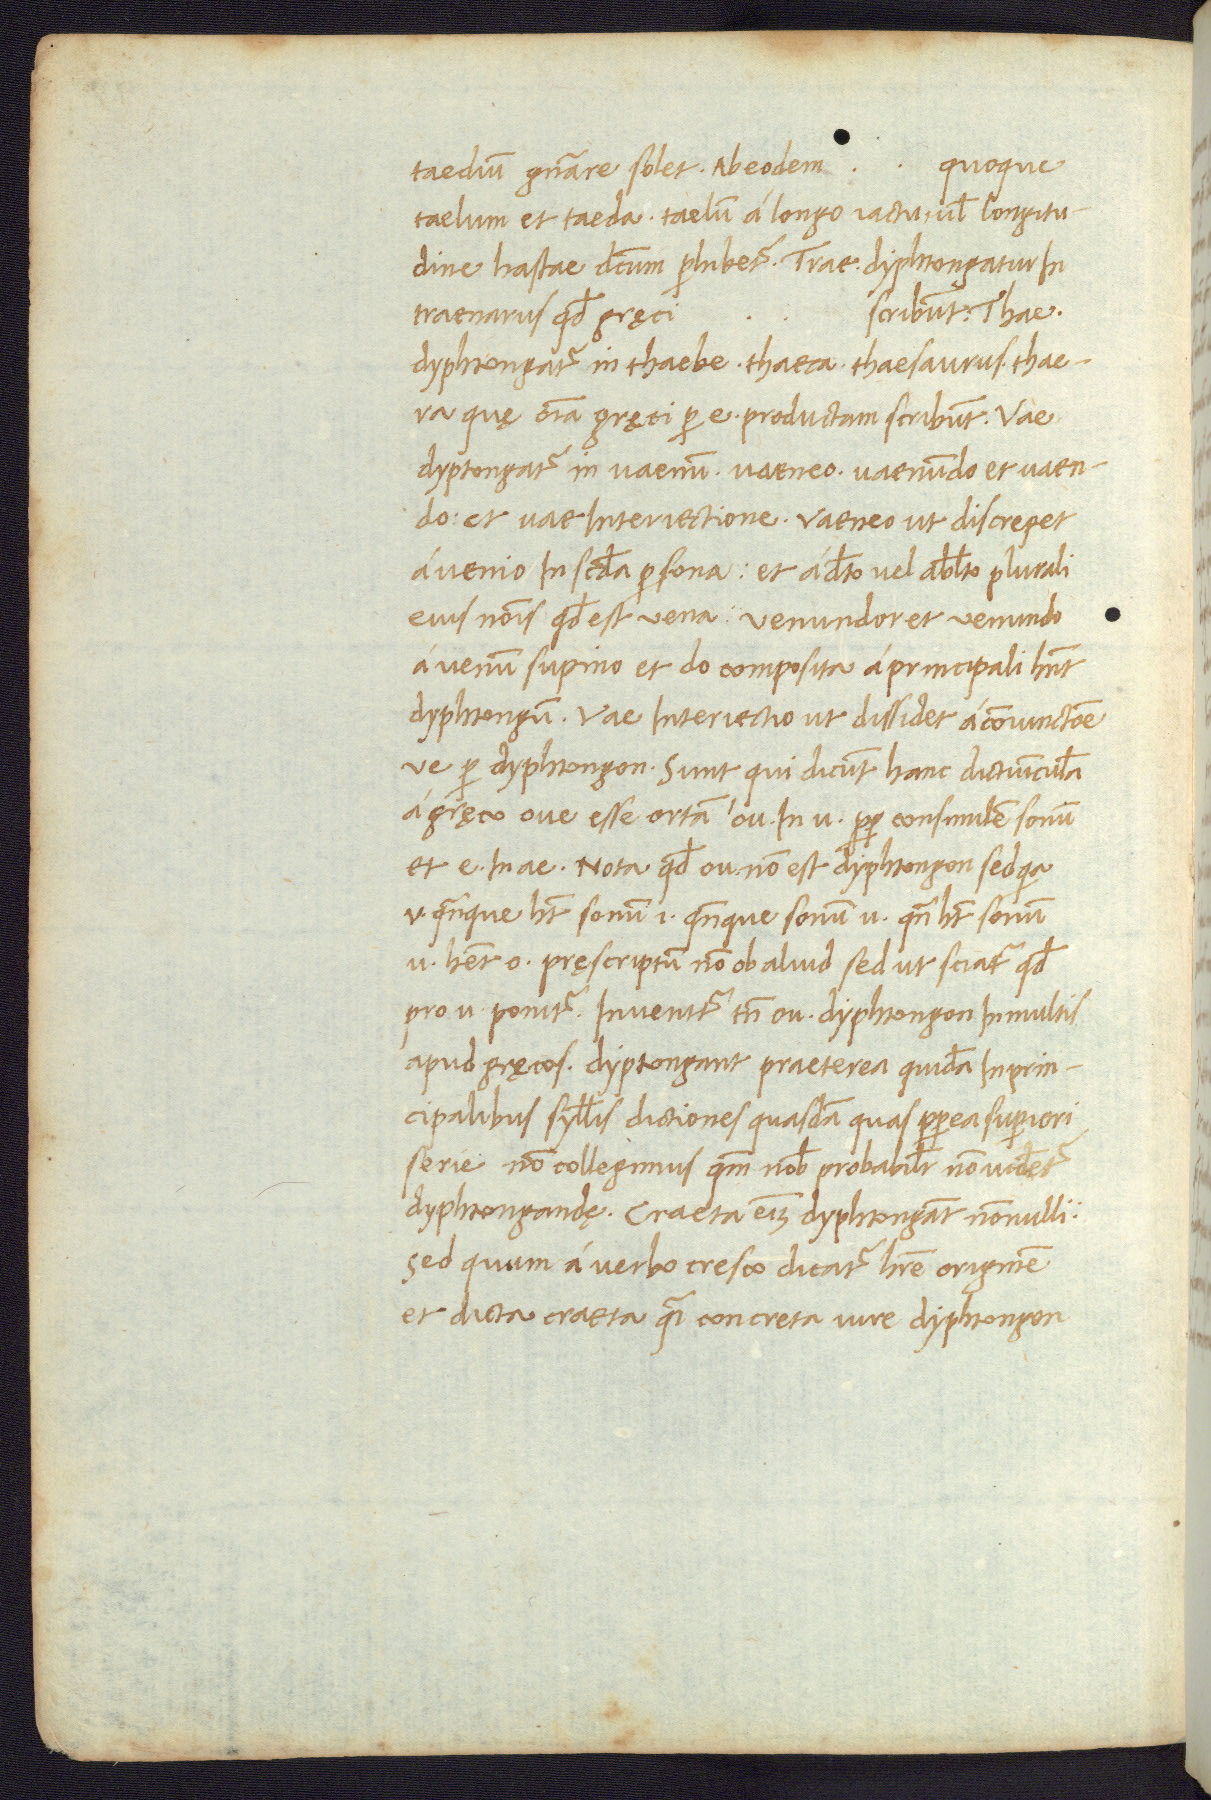 taediū gn̄are solet. Ab eodem . . quoque
taelum et taeda. taelū á longo iactu, ul̄ longitu-
dine hastae dc̄um ꝑhibet᷑. Trae. dyphtongatur In
traenarus qd̄ gręci . . scribūt: Thae.
dyphtongat᷑ in thaebe. thaeca. thaesaurus. thae-
ra quę oīa gręci ꝑ e. productam scribūt. Vae
dyptongat᷑ in uaenū. uaeneo. uaenūdo et uaen-
do: et uae Interiectione. Vaeneo ut discrepet
á uenio In scd̄a ꝑsona: et á dt̄o uel abl̄to plurali
eius nōis qd̄ est vena: venundor et venundo
á uenū supino et do composita á principali hn̄t
dyphtongū. Vae Interiectio ut dissidet á cōiunctōe
ve ꝑ dyphtongon. Sunt qui dicūt hanc dictiūculā
á gręco oue esse ortā ou. In u. ꝓꝑ consimilē sonū
et e. In ae. Nota qd̄ ou. nō est dyphtongon sed qa
v. qn̄que ht̄ sonū i. qn̄que sonū u. qn̄ ht̄ sonū
u. hēt o. pręscriptū nō ob aliud sed ut sciat᷑ qd̄
pro u ponit᷑. Inuenit᷑ tn̄ ou. dyphtongon In multis
apud gręcos. dyptongant praeterea quidā In prin-
cipalibus syll̄is dictiones quasdā quas ꝓꝑea suꝑiori
serie nō collegimus qm̄ nob̄ probabilr̄ nō uidēt᷑
dyphtongandę. Craeta eīꝫ dyphtongāt nōnulli:
Sed quum á uerbo cresco dicat᷑ hr̄e originē
et dicta craeta qi̅ concreta iure dyphtongon